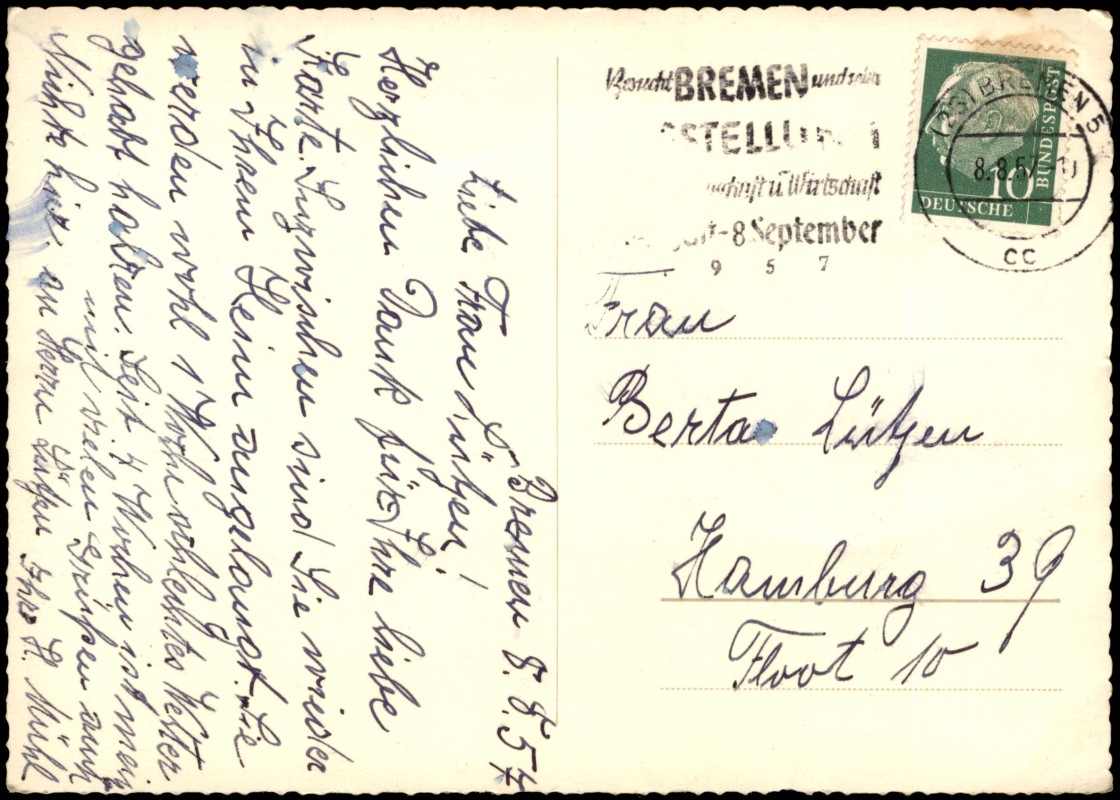 Bremen 8.8.57
Liebe Frau Lützen!
Herzlichen Dank für Ihre liebe
Karte. Inzwischen sind Sie wieder
in Ihrem Heim angelangt. Sie
werden wohl 1 Woche schlechtes Wetter
gehabt haben. Seit 4 Wochen ist mein
Nichte hier.
mit vielen Grüßen auch
an Herrn Lützen Ihre H. Mühl
Besucht BREMEN und seine
SSTELLUN
schrift u Wirtschaft
-8 September
9 5 7
(23) BREMEN 5
8.8.57-1
cc
10
BUNDESPOST
DEUTSCHE
Frau
Berta Lützen
Hamburg 39
Floot 10